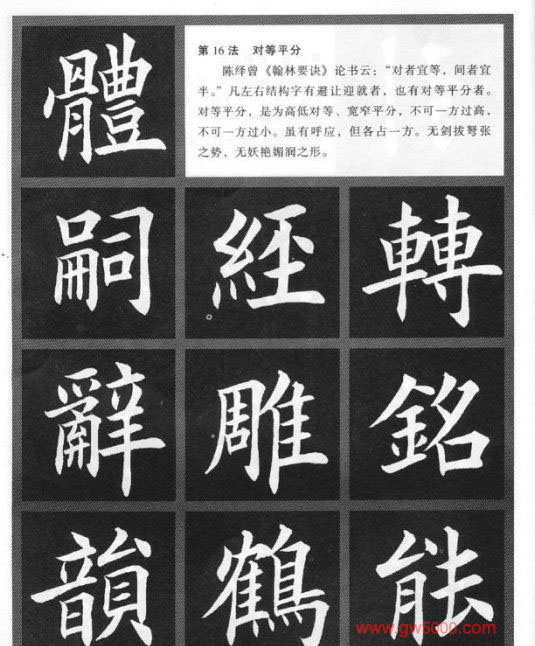 體
第16法 对等平分
陈绎曾《翰林要诀》论书云：“对者宜等，间者宜
半。”凡左右结构字有避让迎就者，也有对等平分者。
对等平分，是为高低对等、宽窄平分，不可一方过高，
不可一方过小。虽有呼应，但各占一方。无剑拔弩张
之势，无妖艳媚润之形。
嗣 經 轉
辭 雕 銘
韻 鶴 能
www.gw5000.com